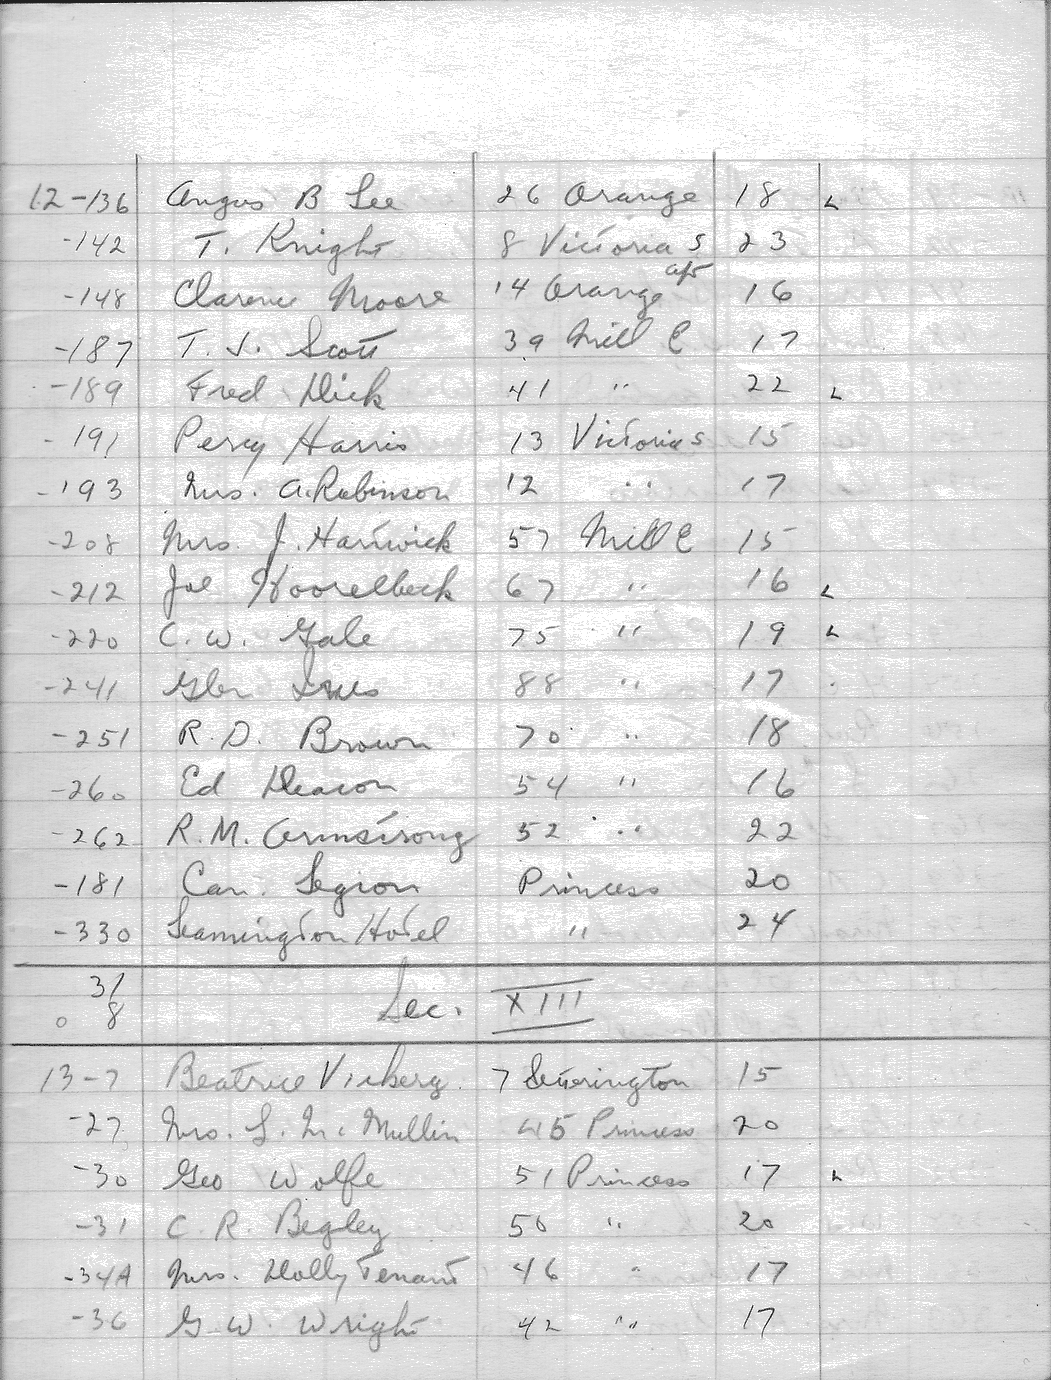 12-136 Angus B Lee 26 Orange 18 L
-142 T. Knight 8 Victoria S 23
-148 Clarence Moore 14 Orange apt 16
-187 T. J. Scott 39 Mill E 17
-189 Fred Dick 41 " 22 L
-191 Percy Harris 13 Victoria S 15
-193 Mrs. A. Robinson 12 " 17
-208 Mrs. J. Hartwick 57 Mill E 15
-212 Joe 67 " 16 L
-220 C. W. Gale 75 " 19 L
-241 Glen 88 " 17
-251 R. D. Brown 70 " 18
-260 Ed Deacon 54 " 16
-262 R. M. Armstrong 52 " 22
-181 Can. Legion Princess 20
-330 Leamington Hotel " 24
31
8 Sec. XIII
13-7 Beatrice 7 15
-27 Mrs. L. McMullin 45 Princess 20
-30 Geo Wolfe 51 Princess 17 L
-31 C. R. Begley 50 " 20
-34A Mrs. Dolly Tenant 46 " 17
-36 G. W. Wright 42 " 17